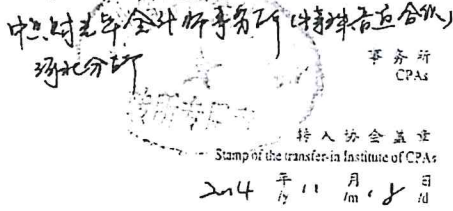 中兴财光华会计师事务所（特殊普通合伙）
河北分所
事务所
CPAs
转所专用章
转入协会盖章
Stamp of the transfer-in Institute of CPAs
2014 年 11 月 18 日
/y /m /d